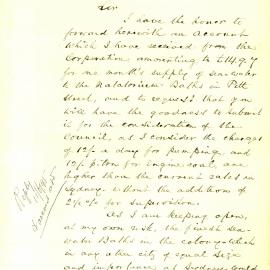 Sir
I have the honor to
forward herewith an Account
which I have received from the
Corporation amounting to £14.9.7
for one month's supply of sea water
to the Natatorium Baths in Pitt
Street, and to request that you
will have the goodness to submit
it for the consideration of the
Council, as I consider the charges
of 12/- a day for pumping, and
10/- p. ton for engine coal, are
higher than the current rates in
Sydney without the addition of
2½% for supervision.
As I am keeping open,
at my own risk, the finest sea-
water Baths in the colony, which
in any other city of equal size
and importance at Sydney would